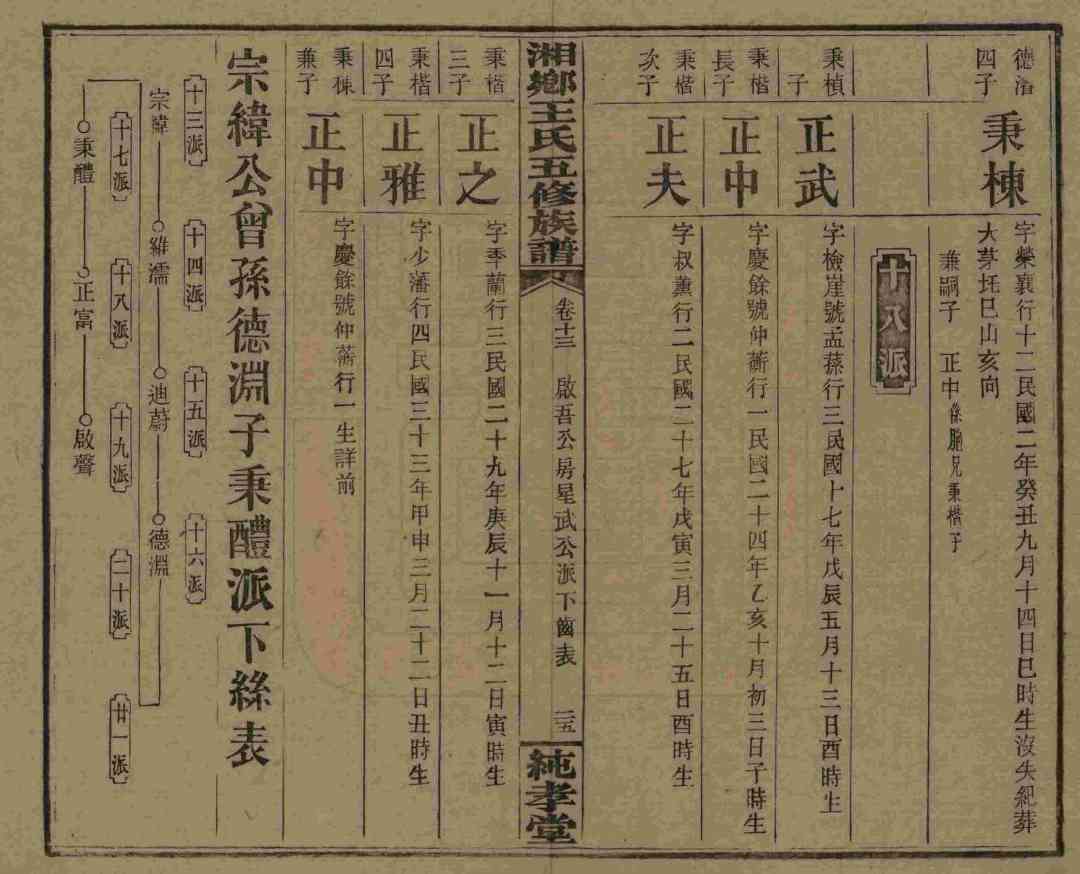 德濬
四子
秉棟
字榮襄行十二民國二年癸丑九月十四日巳時生沒失紀葬
大茅坵巳山亥向
兼嗣子　正中係胞兄秉楷子
十八派
秉楨
子
正武
字檢崖號孟蓀行三民國十七年戊辰五月十三日酉時生
秉楷
長子
正中
字慶餘號仲蘅行一民國二十四年乙亥十月初三日子時生
秉楷
次子
正夫
字叔薰行二民國二十七年戊寅三月二十五日酉時生
湘鄉王氏五修族譜
卷十三　啟吾公房星武公派下齒表　二五
純孝堂
秉楷
三子
正之
字季蘭行三民國二十九年庚辰十一月十二日寅時生
秉楷
四子
正雅
字少藩行四民國三十三年甲申三月二十二日丑時生
秉棟
兼子
正中
字慶餘號仲蘅行一生詳前
宗緯公曾孫德淵子秉醴派下絲表
十三派　十四派　十五派　十六派
宗緯　維濡　迪蔚　德淵
十七派　十八派　十九派　二十派　廿一派
秉醴　正富　啟聲